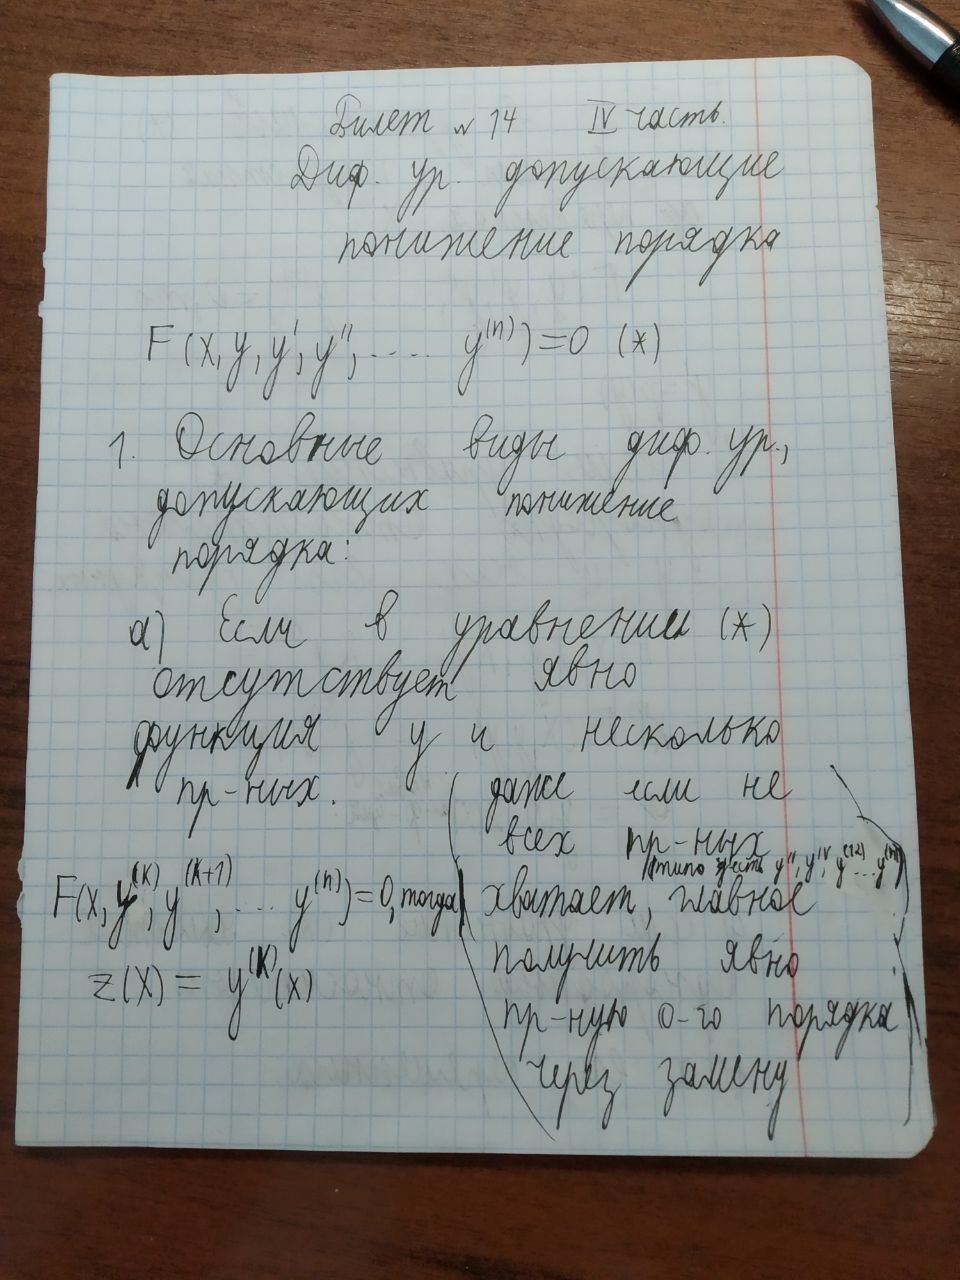 Билет № 14 IV часть.
Диф. ур. допускающие
понижение порядка
F(x, y, y', y'', .... y⁽ⁿ⁾)=0 (*)
1. Основные виды диф. ур.,
допускающих понижение
порядка:
а) Если в уравнении (*)
отсутствует явно
функция y и несколько
пр-ных.
F(x, y⁽ᴷ⁾, y⁽ᴷ⁺¹⁾, .... y⁽ⁿ⁾)=0, тогда
z(x) = y⁽ᴷ⁾(x)
(даже если не
всех пр-ных
(типо есть y'', y^IV, y⁽¹²⁾...y⁽ⁿ⁾)
хватает, главное
получить явно
пр-ную 0-го порядка
через замену)